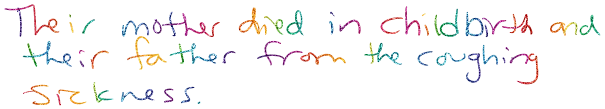 Their mother died in childbirth and
their father from the coughing
sickness.